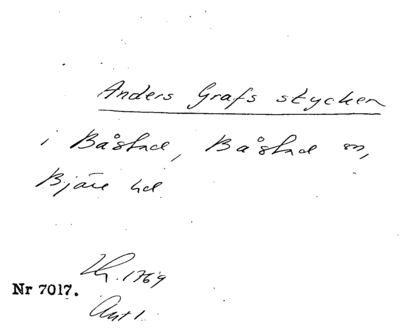 Anders Grafs stycken
i Båstad, Båstad sn,
Bjäre hd
Lh. 1769
Nr 7017.
Ant 1.